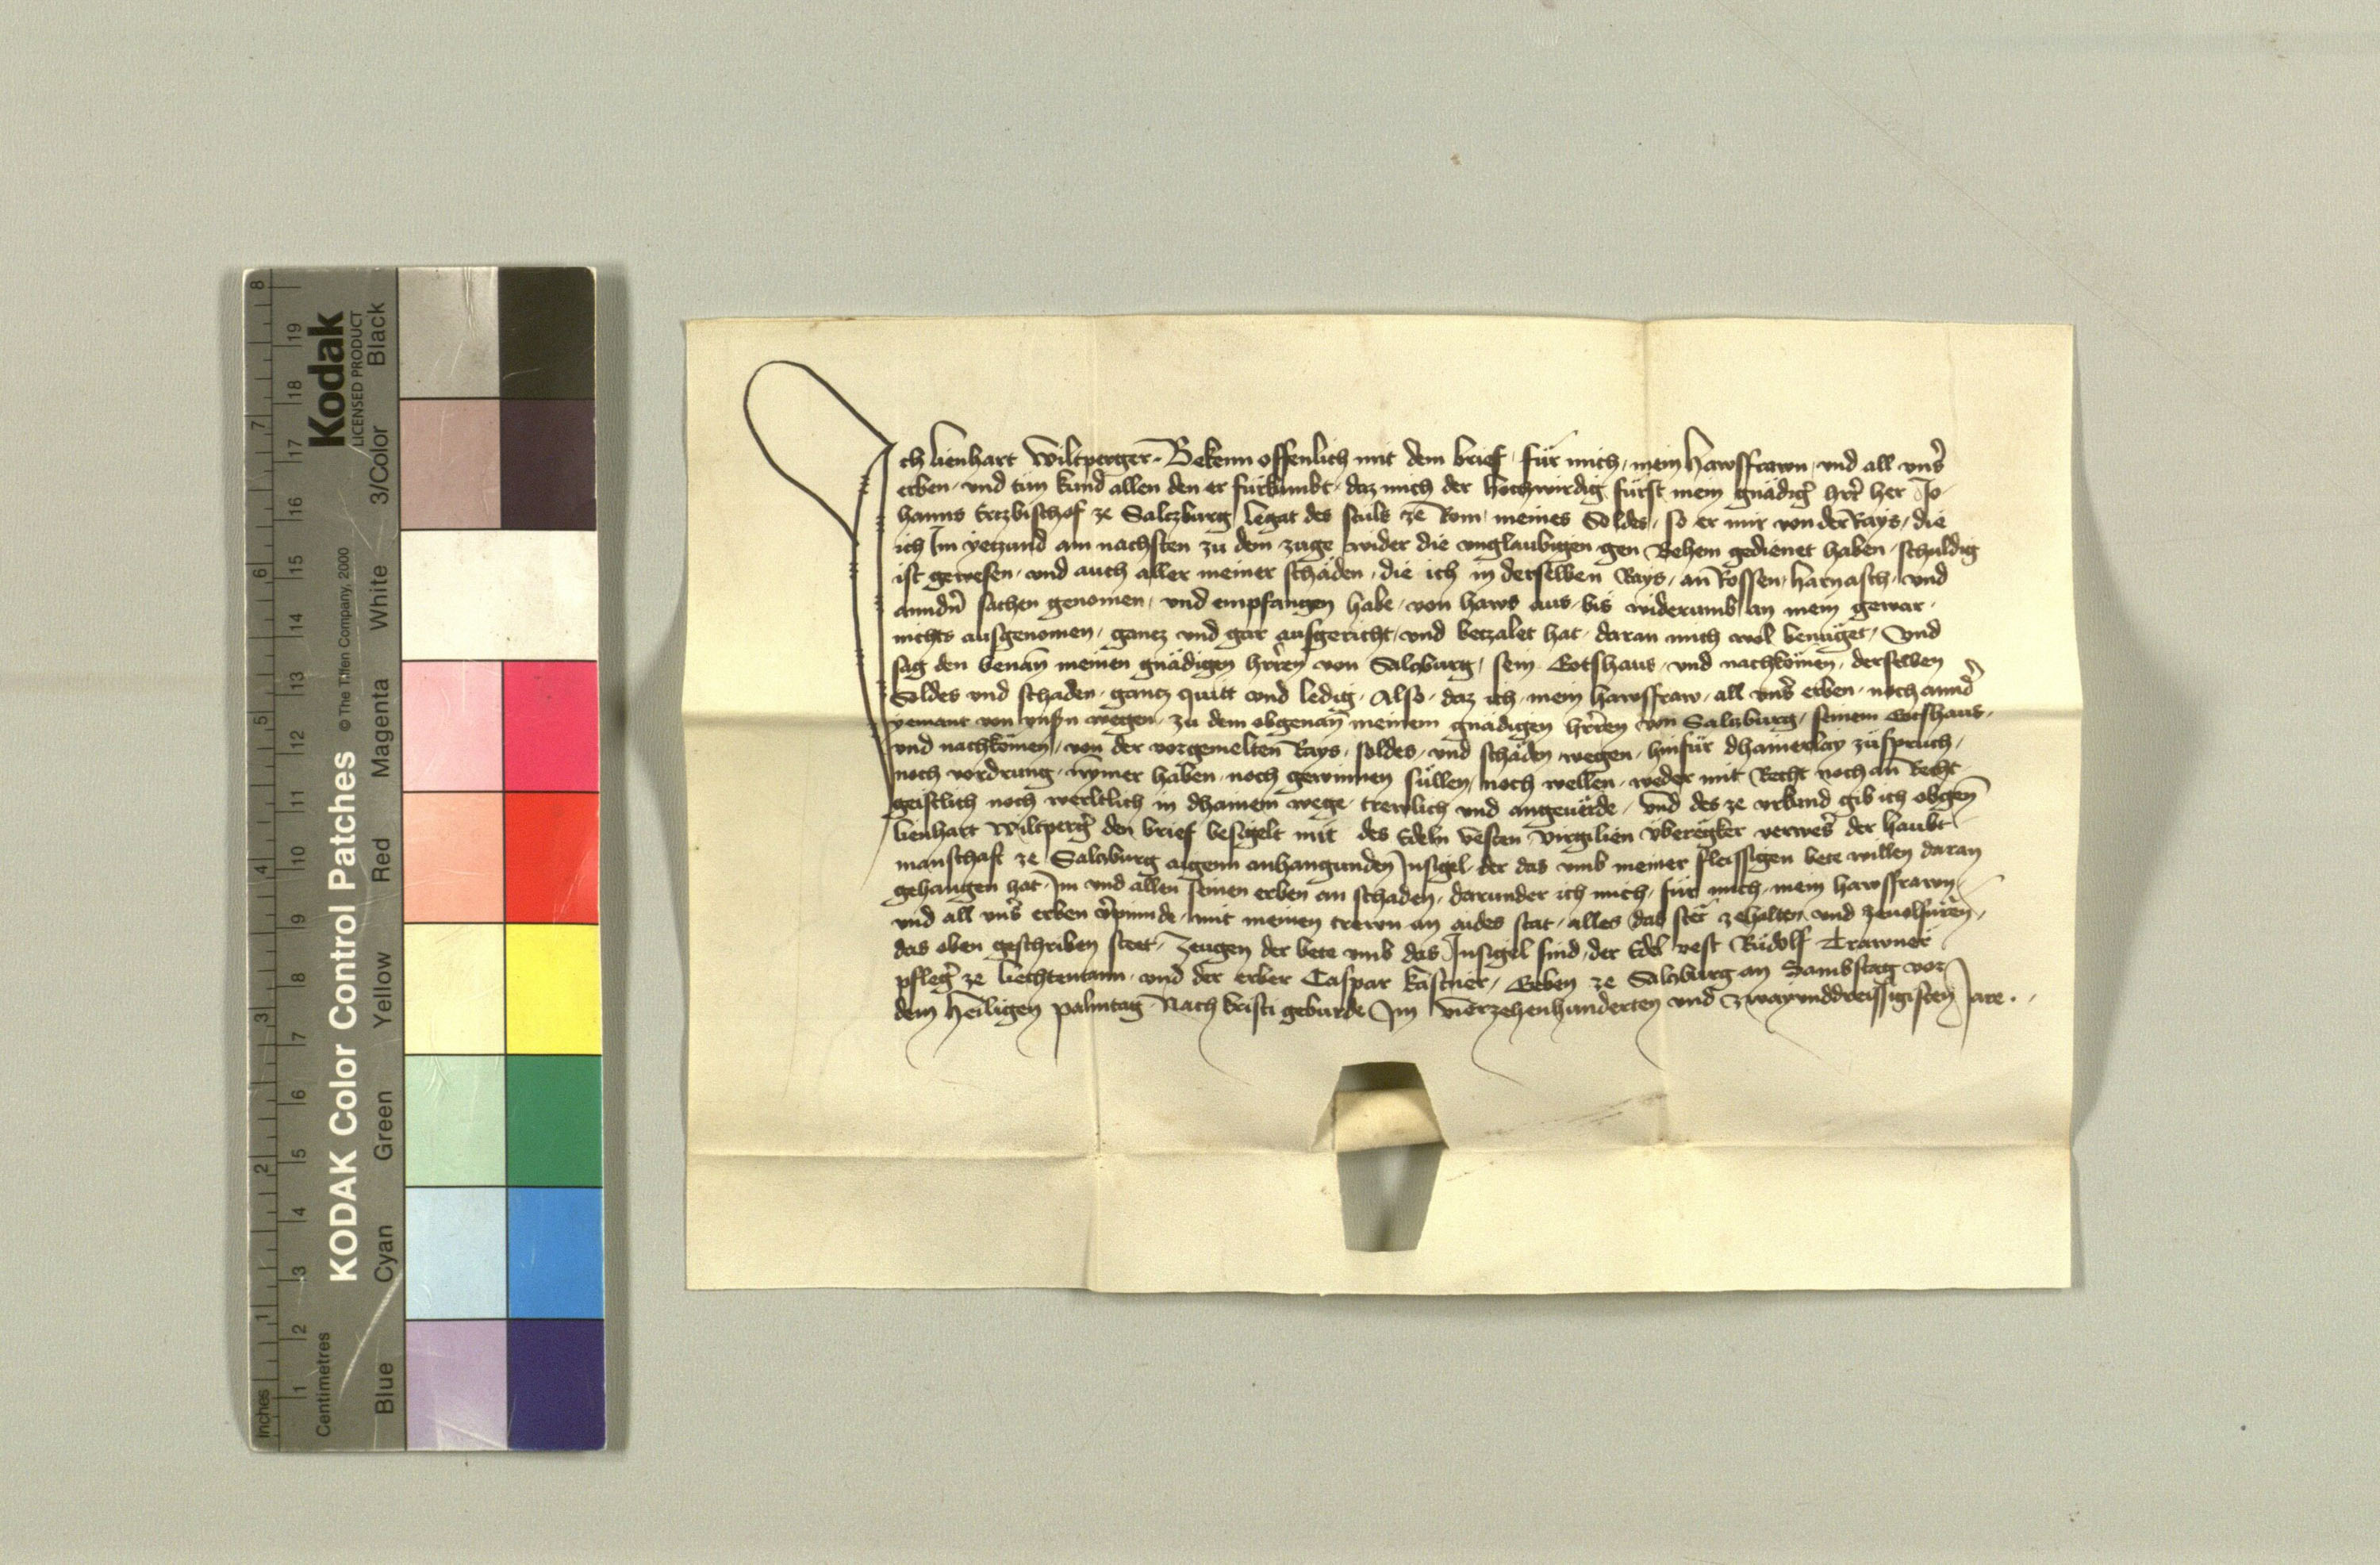 Ich Lienhart Wiltperger. Bekenn offenlich mit dem brief, für mich, mein Hawsffrawn, vnd all vnsˀ
erben, vnd tün kund allen den er fürkumbt, daz mich der Hochwirdig fürst mein gnädigˀ hrꝛˀ her Jo-
hanns Ertzbischof ze Saltzburg Legat des stuls ze Rom, meines Soldes, so er mir von der Rays, die
ich Im yetzund am nachsten zu dem zuge wider die vnglaubigen gen Behem gedienet haben, schuldig
ist gewesen, vnd auch aller meiner schäden, die ich in derselben Rays, an Rossen, harnasch, vnd
anndˀn sachen genomen, vnd empfangen habe, von haws aus, bis widerumb an mein gewar,
nichts ausgenomen, gancz vnd gar ausgericht, vnd betzalet hat, daran mich wol benüget, Vnd
sag den benañ meinen gnädigen hrꝛen von Salzburg, sein Gotshaus, vnd nachkömen, derselben
Soldes vnd schäden, gantz quitt vnd ledig, Also, daz ich, mein hawsfraw, all vnsˀ erben, noch anndˀ
yemant von vnsˀn wegen, zu dem obgenañ meinem gnädigen hrꝛen von Salzburg, seinem Gotshaus,
vnd nachkömen, von der vorgemelten Rays, soldes, vnd schäden wegen, hinfür dhainerlay züspruch,
noch vordrung, nymer haben, noch gewinnen süllen, noch wellen, weder mit Recht noch an Recht
geistlich noch werltlich in dhainem wege, trewlich vnd angeuërde, Vnd des ze vrkund gib ich obgeñ
Lienhart Wiltpergˀ den brief besigelt mit des Edeln vesten Virgilien Überegker verwesˀ der haubt-
manschaft ze Salzburg aigenn anhangunden Insigel, der das vmb meiner fleissigen bete willen daran
gehangen hat, Im vnd allen seinen erben an schaden, darunder ich mich, für mich, mein hawsffrawn,
vnd all vnsˀ erben vˀpinnde, mit meinen trewn an aides stat, alles das stët zehalten, vnd zeuolfüren,
das oben geschriben steet, Zeugen der bete vmb das Insigel sind, der Edel vest Rüdolf Trawner
pflegˀ ze Liechtentann, vnd der erber Caspar Kastner, Geben ze Salzburg an Sambstag vor
dem Heiligen palmtag Nach kristi geburde Im Vierzehenhunderten vnd Zwayunddreissigisten Jare.
KODAK Color Control Patches © The Tiffen Company, 2000
Kodak
LICENSED PRODUCT
Inches 1 2 3 4 5 6 7 8
Centimetres 1 2 3 4 5 6 7 8 9 10 11 12 13 14 15 16 17 18 19
Blue Cyan Green Yellow Red Magenta White 3/Color Black